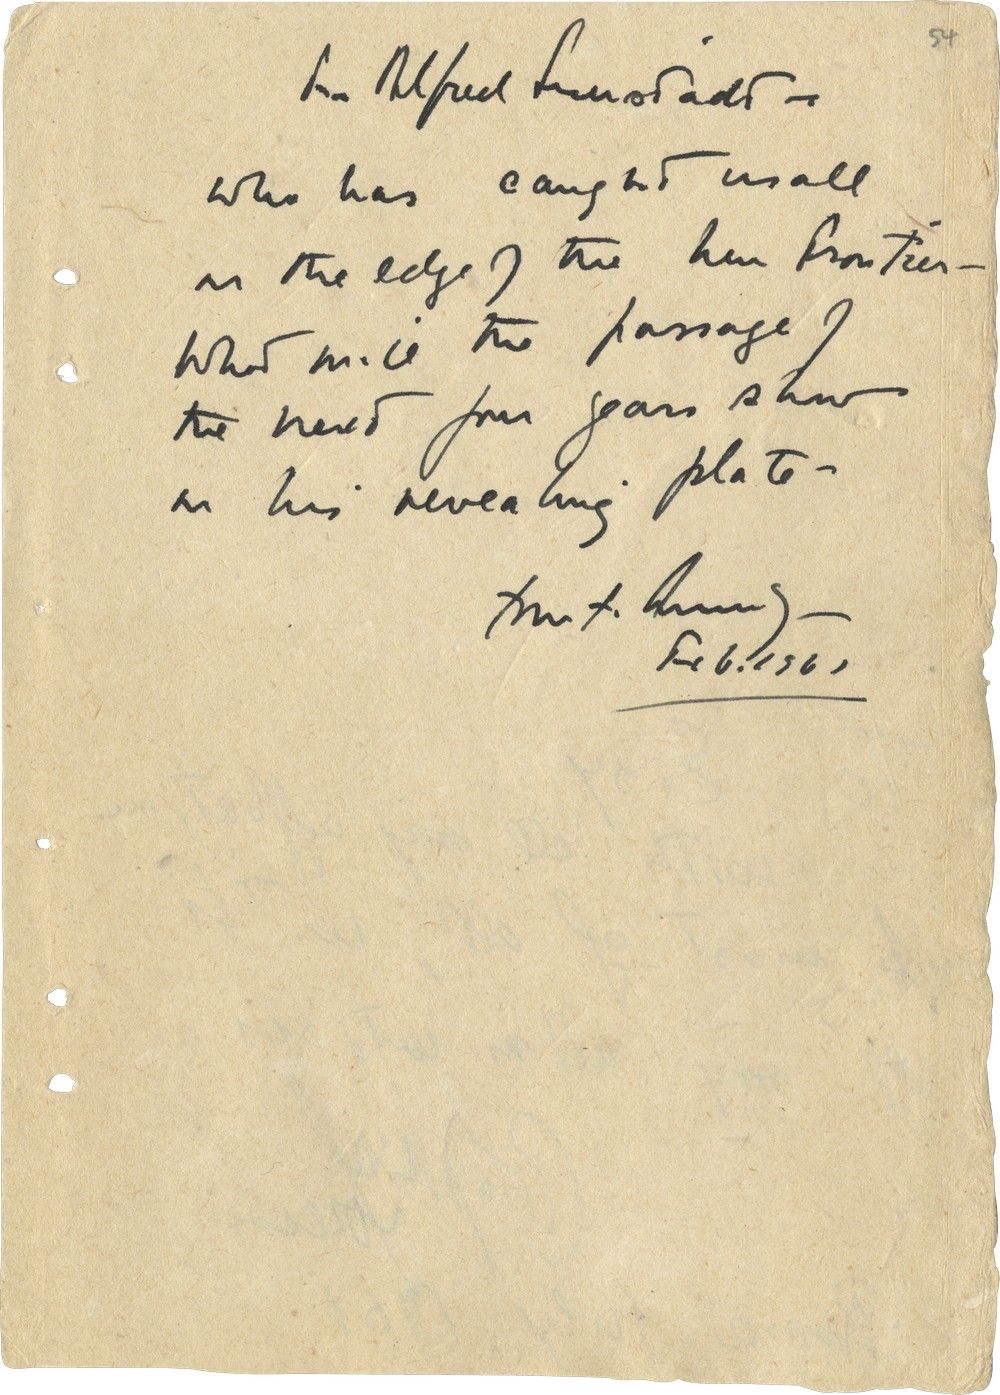 54
For Alfred Eisenstadt –
who has caught us all
on the edge of the New Frontier –
What will the passage of
the next four years show
on his revealing plate –
John F. Kennedy
Feb. 1961